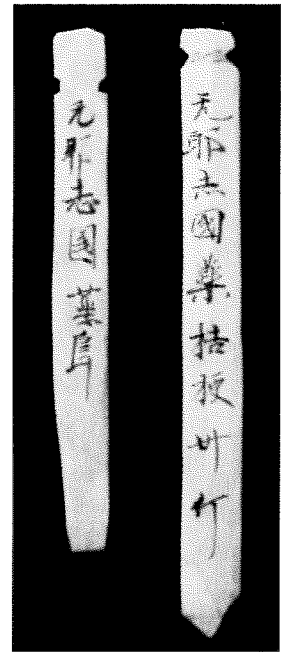 无耶志國薬桔梗卅斤
无耶志國薬烏